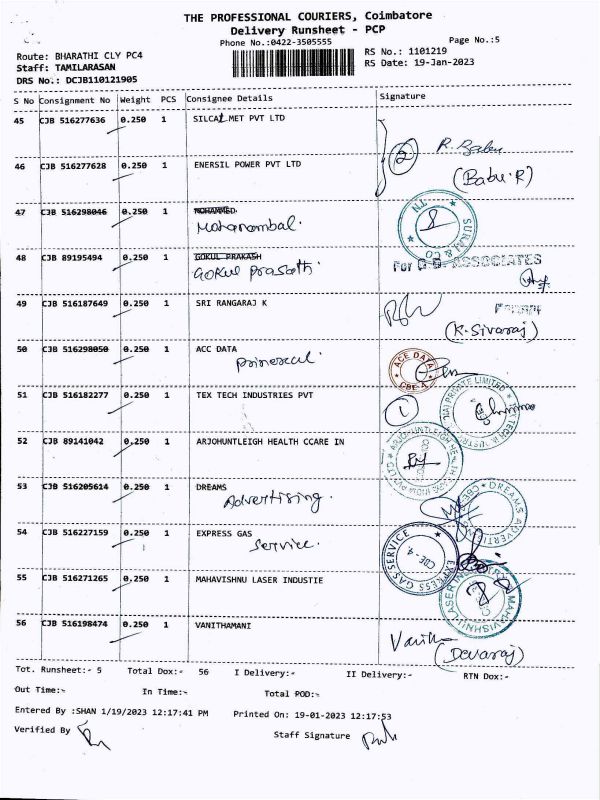 THE PROFESSIONAL COURIERS, Coimbatore
Delivery Runsheet - PCP
Phone No.:0422-3505555
Page No.:5
Route: BHARATHI CLY PC4
RS No.: 1101219
Staff: TAMILARASAN
RS Date: 19-Jan-2023
DRS No.: DCJB110121905
S No Consignment No Weight PCS Consignee Details Signature
45 CJB 516277636 0.250 1 SILCAL MET PVT LTD
2 R. Babu
46 CJB 516277628 0.250 1 ENERSIL POWER PVT LTD
(Babu.R)
47 CJB 516298046 0.250 1 MOHAMMED
Mohanambal.
SURAJ & CO TN
48 CJB 89195494 0.250 1 GOKUL PRAKASH
GOKUL Prasath
For G. B. ASSOCIATES
49 CJB 516187649 0.250 1 SRI RANGARAJ K
(K.Sivaraj)
50 CJB 516298050 0.250 1 ACC DATA
ACE DATA CBE-4
51 CJB 516182277 0.250 1 TEX TECH INDUSTRIES PVT
1
52 CJB 89141042 0.250 1 ARJOHUNTLEIGH HEALTH CCARE IN
53 CJB 516205614 0.250 1 DREAMS
Advertising.
DREAMS ADVERTISING
54 CJB 516227159 0.250 1 EXPRESS GAS
Service.
EXPRESS GAS SERVICE CBE-4
55 CJB 516271265 0.250 1 MAHAVISHNU LASER INDUSTIE
56 CJB 516198474 0.250 1 VANITHAMANI
(Devaraj)
Tot. Runsheet:- 5 Total Dox:- 56 I Delivery:- II Delivery:- RTN Dox:-
Out Time:- In Time:- Total POD:-
Entered By :SHAN 1/19/2023 12:17:41 PM Printed On: 19-01-2023 12:17:53
Verified By Staff Signature